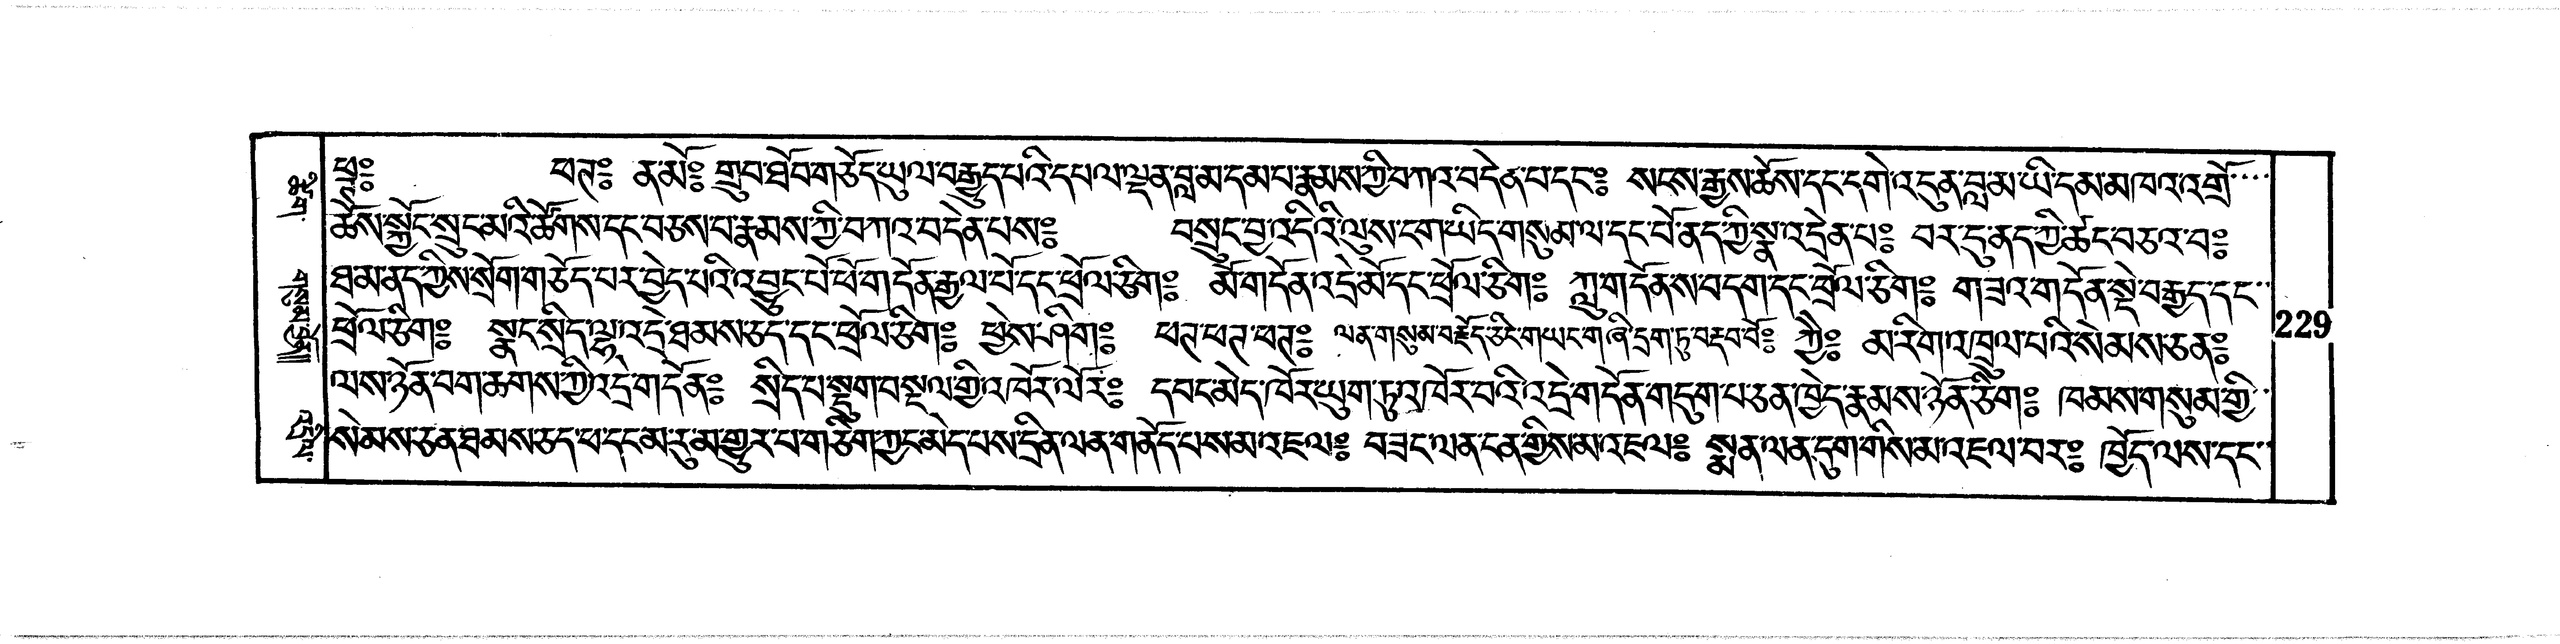 ཕྲྀ༔ ཕཊ༔ ན་མོ༔ གྲུབ་ཐོབ་གཅོད་ཡུལ་བརྒྱུད་པའི་དཔལ་ལྡན་བླ་མ་དམ་པ་རྣམས་ཀྱི་བཀའ་བདེན་པ་དང་༔ སངས་རྒྱས་ཆོས་དང་དགེ་འདུན་བླ་མ་ཡི་དམ་མཁའ་འགྲོ
ཆོས་སྐྱོང་སྲུང་མའི་ཚོགས་དང་བཅས་པ་རྣམས་ཀྱི་བཀའ་བདེན་པས༔ བསྲུང་བྱ་འདིའི་ལུས་ངག་ཡིད་གསུམ་ལ་དང་པོ་ནད་ཀྱི་སྣ་འདྲེན་པ༔ བར་དུ་ནད་ཀྱི་ཚང་བཅའ་བ༔
ཐ་མ་ནད་ཀྱིས་སྲོག་གཅོད་པར་བྱེད་པའི་འབྱུང་པོ་ཕོ་གདོན་རྒྱལ་པོ་དང་ཕྲོལ་ཅིག༔ མོ་གདོན་འདྲེ་མོ་དང་ཕྲོལ་ཅིག༔ ཀླུ་གདོན་ས་བདག་དང་ཕྲོལ་ཅིག༔ གཟའ་གདོན་སྡེ་བརྒྱད་དང་
ཕྲོལ་ཅིག༔ སྣང་སྲིད་ལྷ་འདྲེ་ཐམས་ཅད་དང་ཕྲོལ་ཅིག༔ ཕྱེས་ཤིག༔ ཕཊ་ཕཊ་ཕཊ༔ ལན་གསུམ་བརྗོད་ཅིང་གཡང་གཞི་དྲག་ཏུ་བརྡབ་བོ༔ ཀྱེ༔ མ་རིག་འཁྲུལ་པའི་སེམས་ཅན༔
ལས་ཉོན་བག་ཆགས་ཀྱི་འདྲེ་གདོན༔ སྲིད་པ་སྡུག་བསྔལ་གྱི་འཁོར་ལོར༔ དབང་མེད་ཁོར་ཡུག་ཏུ་འཁོར་བའི་འདྲེ་གདོན་གདུག་པ་ཅན་ཁྱེད་རྣམས་ཉོན་ཅིག༔ ཁམས་གསུམ་གྱི་
སེམས་ཅན་ཐམས་ཅད་ཕ་དང་མ་རུ་མ་གྱུར་པ་གཅིག་ཀྱང་མེད་པས་དྲིན་ལན་གནོད་པས་མ་འཇལ༔ བཟང་ལན་ངན་གྱིས་མ་འཇལ༔ སྨན་ལན་དུག་གིས་མ་འཇལ་བར༔ ཁྱེད་ལས་དང་
229